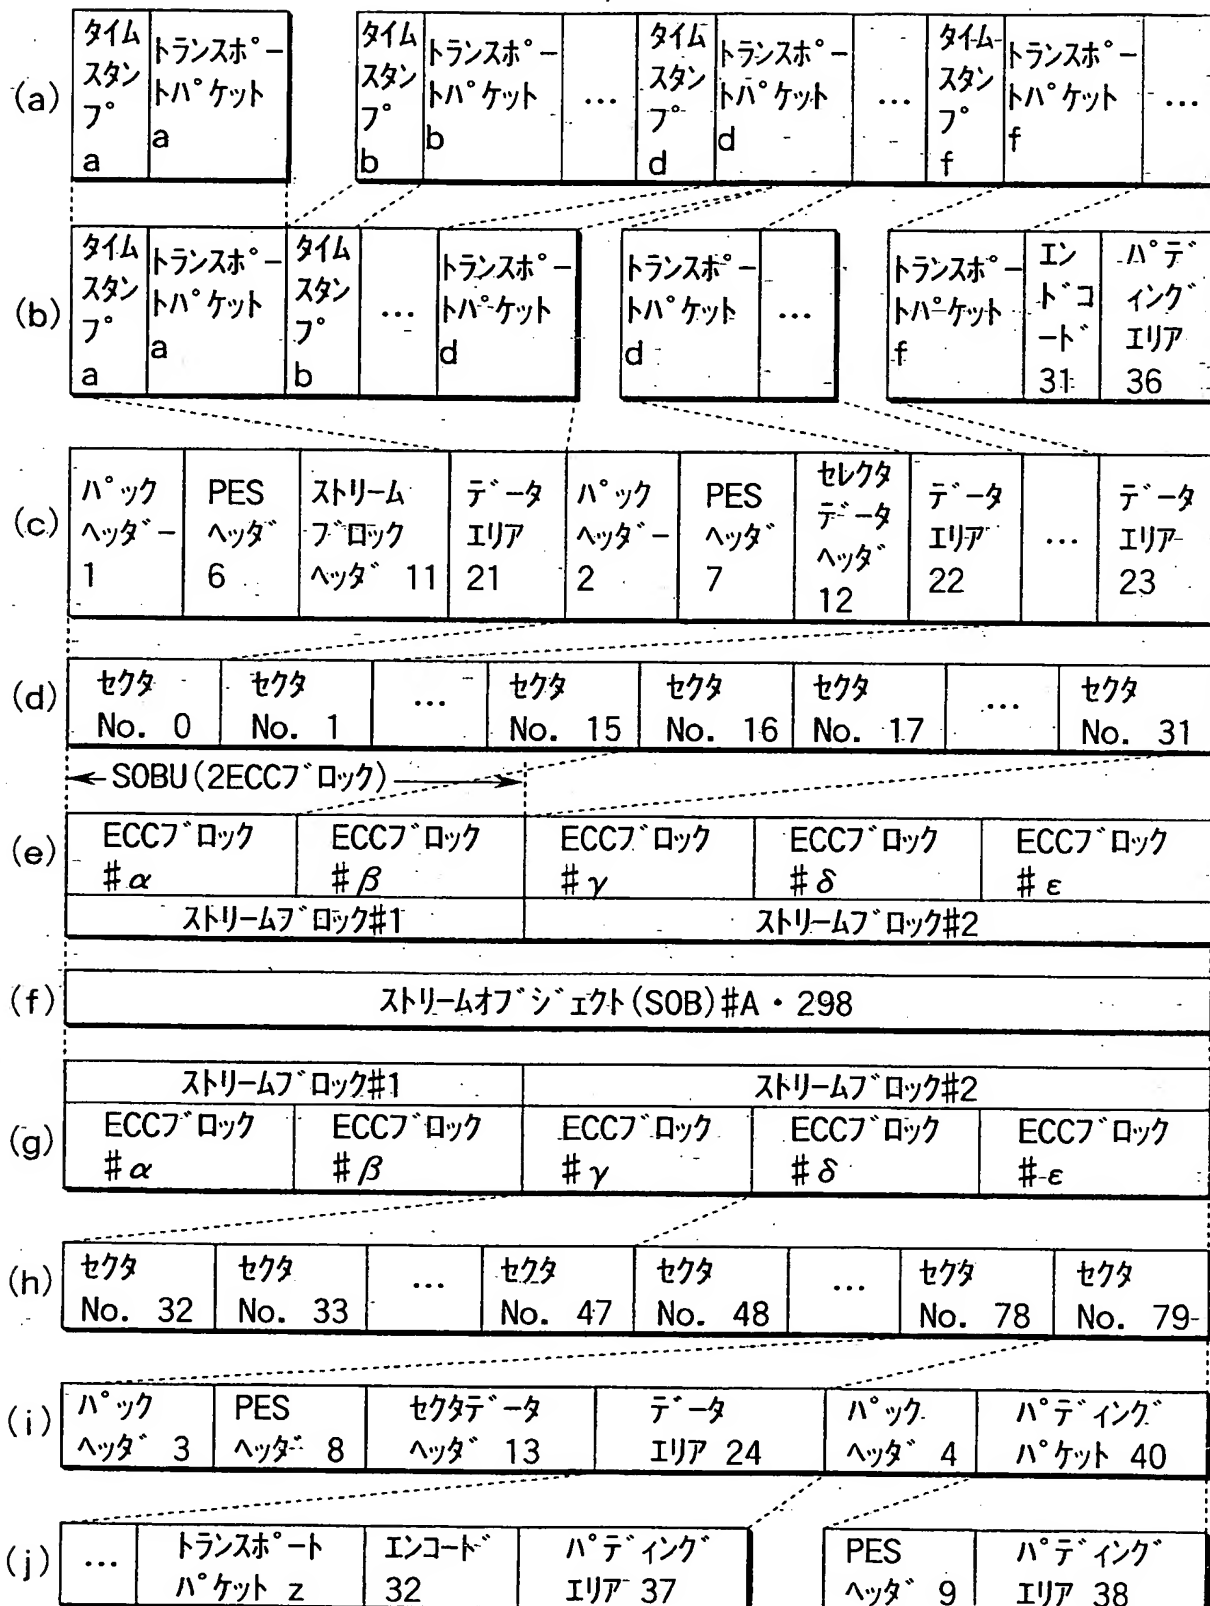 (a)
タイム
スタン
プ
a
トランスポー
トパケット
a
タイム
スタン
プ
b
トランスポー
トパケット
b
…
タイム
スタン
プ
d
トランスポー
トパケット
d
…
タイム
スタン
プ
f
トランスポー
トパケット
f
…
(b)
タイム
スタン
プ
a
トランスポー
トパケット
a
タイム
スタン
プ
b
…
トランスポー
トパケット
d
トランスポー
トパケット
d
…
トランスポー
トパーケット
f
エン
ドコ
ード
31
パデ
ィング
エリア
36
(c)
パック
ヘッダー
1
PES
ヘッダ
6
ストリーム
ブロック
ヘッダ 11
データ
エリア
21
パック
ヘッダー
2
PES
ヘッダ
7
セレクタ
データ
ヘッダ
12
データ
エリア
22
…
データ
エリア
23
(d)
セクタ
No. 0
セクタ
No. 1
…
セクタ
No. 15
セクタ
No. 16
セクタ
No. 17
…
セクタ
No. 31
SOBU(2ECCブロック)
(e)
ECCブロック
#α
ECCブロック
#β
ECCブロック
#γ
ECCブロック
#δ
ECCブロック
#ε
ストリームブロック#1
ストリームブロック#2
(f)
ストリームオブジェクト(SOB)#A・298
ストリームブロック#1
ストリームブロック#2
(g)
ECCブロック
#α
ECCブロック
#β
ECCブロック
#γ
ECCブロック
#δ
ECCブロック
#ε
(h)
セクタ
No. 32
セクタ
No. 33
…
セクタ
No. 47
セクタ
No. 48
…
セクタ
No. 78
セクタ
No. 79
(i)
パック
ヘッダ 3
PES
ヘッダ 8
セクタデータ
ヘッダ 13
データ
エリア 24
パック
ヘッダ 4
パディング
パケット 40
(j)
…
トランスポート
パケット z
エンコード
32
パディング
エリア 37
PES
ヘッダ 9
パディング
エリア 38